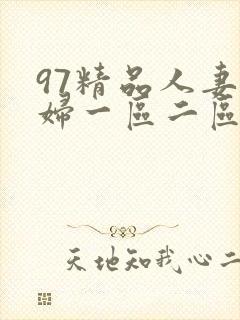 97精品人妻
婦一區二區
天地知我心二